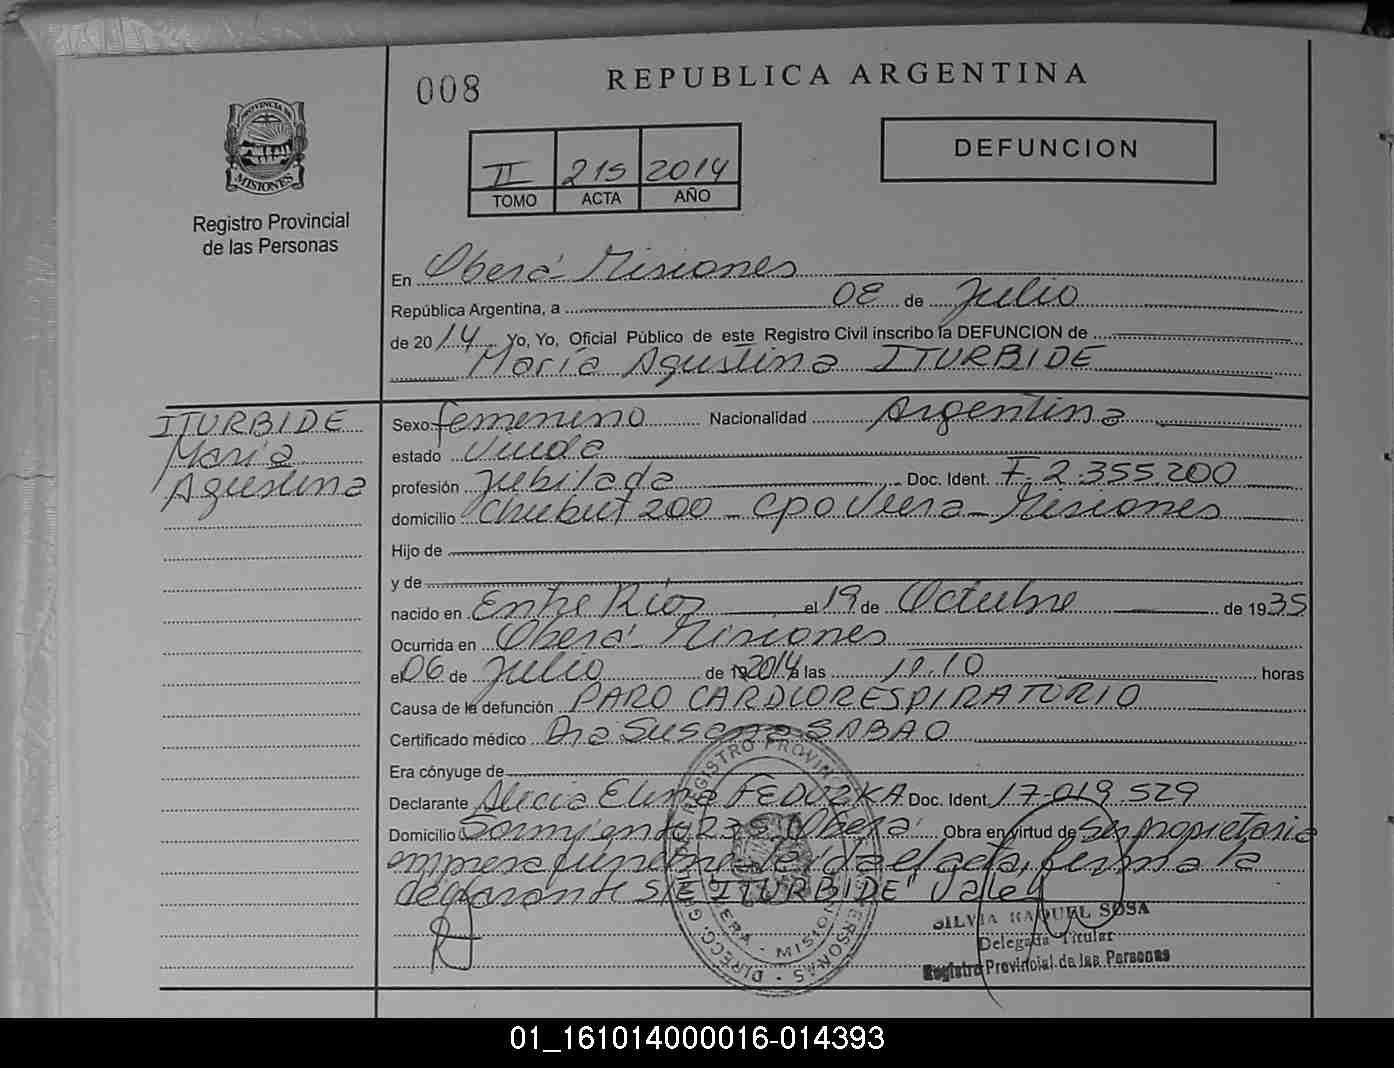 008
REPUBLICA ARGENTINA
PROVINCIA DE
MISIONES
Registro Provincial
de las Personas
II 215 2014
TOMO ACTA AÑO
DEFUNCION
En Oberá - Misiones
República Argentina, a 08 de Julio
de 2014 Yo, Yo, Oficial Público de este Registro Civil inscribo la DEFUNCION de
María Agustina ITURBIDE
ITURBIDE
María
Agustina
Sexo femenino Nacionalidad Argentina
estado Viuda
profesión Jubilada Doc. Ident. F. 2.355.200
domicilio Chubut 200 - Cpo Viera - Misiones
Hijo de
y de
nacido en Entre Ríos el 19 de Octubre de 1935
Ocurrida en Oberá Misiones
el 06 de Julio de 2014 a las 11.10 horas
Causa de la defunción PARO CARDIORESPIRATORIO
Certificado médico Dra Susana SABAO
Era cónyuge de
Declarante Alicia Elena FEDUZKA Doc. Ident. 17.019.529
Domicilio Sarmiento 235 Oberá Obra en virtud de Ser propietaria
empresa fúnebre leída el acta, firma la
declarante S/E "ITURBIDE" Vale
SILVIA RAQUEL SOSA
Delegada Titular
Registro Provincial de las Personas
01_161014000016-014393